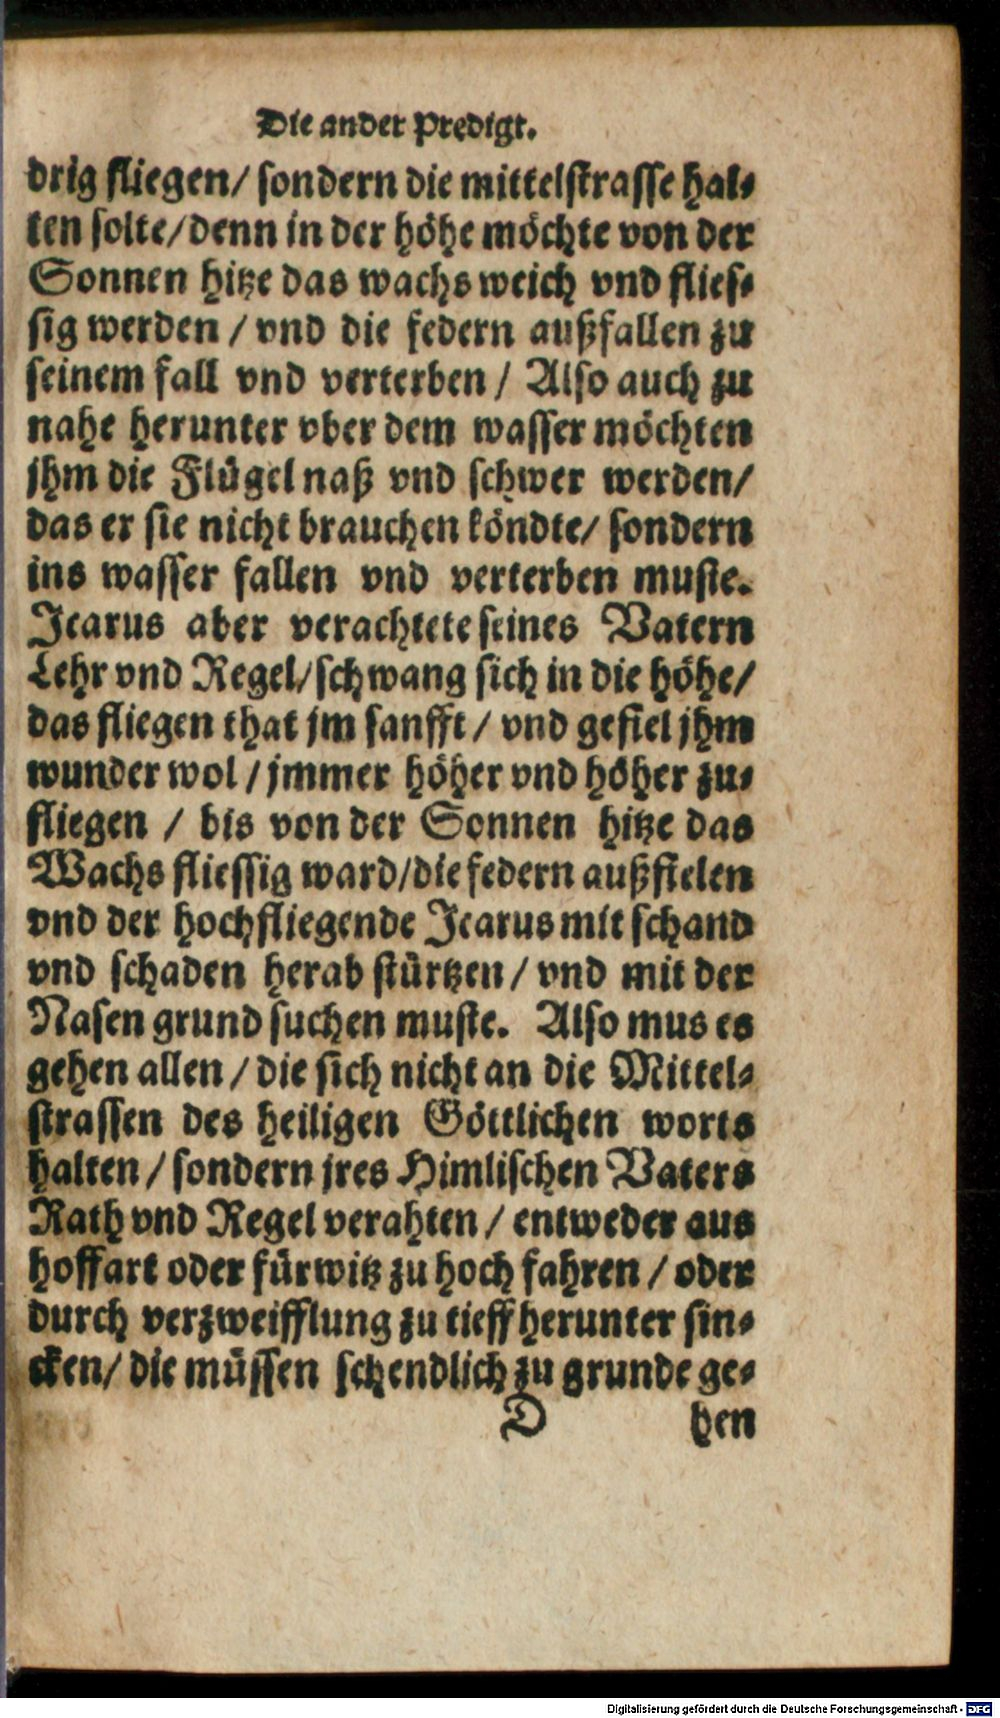 Die ander Predigt.
drig fliegen/ sondern die mittelstrasse hal⸗
ten solte/ denn in der höhe möchte von der
Sonnen hitze das wachs weich vnd flies⸗
sig werden / vnd die federn außfallen zu
seinem fall vnd verterben / Also auch zu
nahe herunter vber dem wasser möchten
jhm die Flügel naß vnd schwer werden/
das er sie nicht brauchen köndte/ sondern
ins wasser fallen vnd verterben muste.
Icarus aber verachtete seines Vatern
Lehr vnd Regel/ schwang sich in die höhe/
das fliegen that jm sanfft / vnd gefiel jhm
wunder wol / jmmer höher vnd höher zu⸗
fliegen / bis von der Sonnen hitze das
Wachs fliessig ward/ die federn außfielen
vnd der hochfliegende Icarus mit schand
vnd schaden herab stürtzen / vnd mit der
Nasen grund suchen muste. Also mus es
gehen allen / die sich nicht an die Mittel⸗
strassen des heiligen Göttlichen worts
halten / sondern jres Himlischen Vaters
Rath vnd Regel verahten / entweder aus
hoffart oder fürwitz zu hoch fahren / oder
durch verzweifflung zu tieff herunter sin⸗
cken/ die müssen schendlich zu grunde ge⸗
D hen
Digitalisierung gefördert durch die Deutsche Forschungsgemeinschaft - DFG